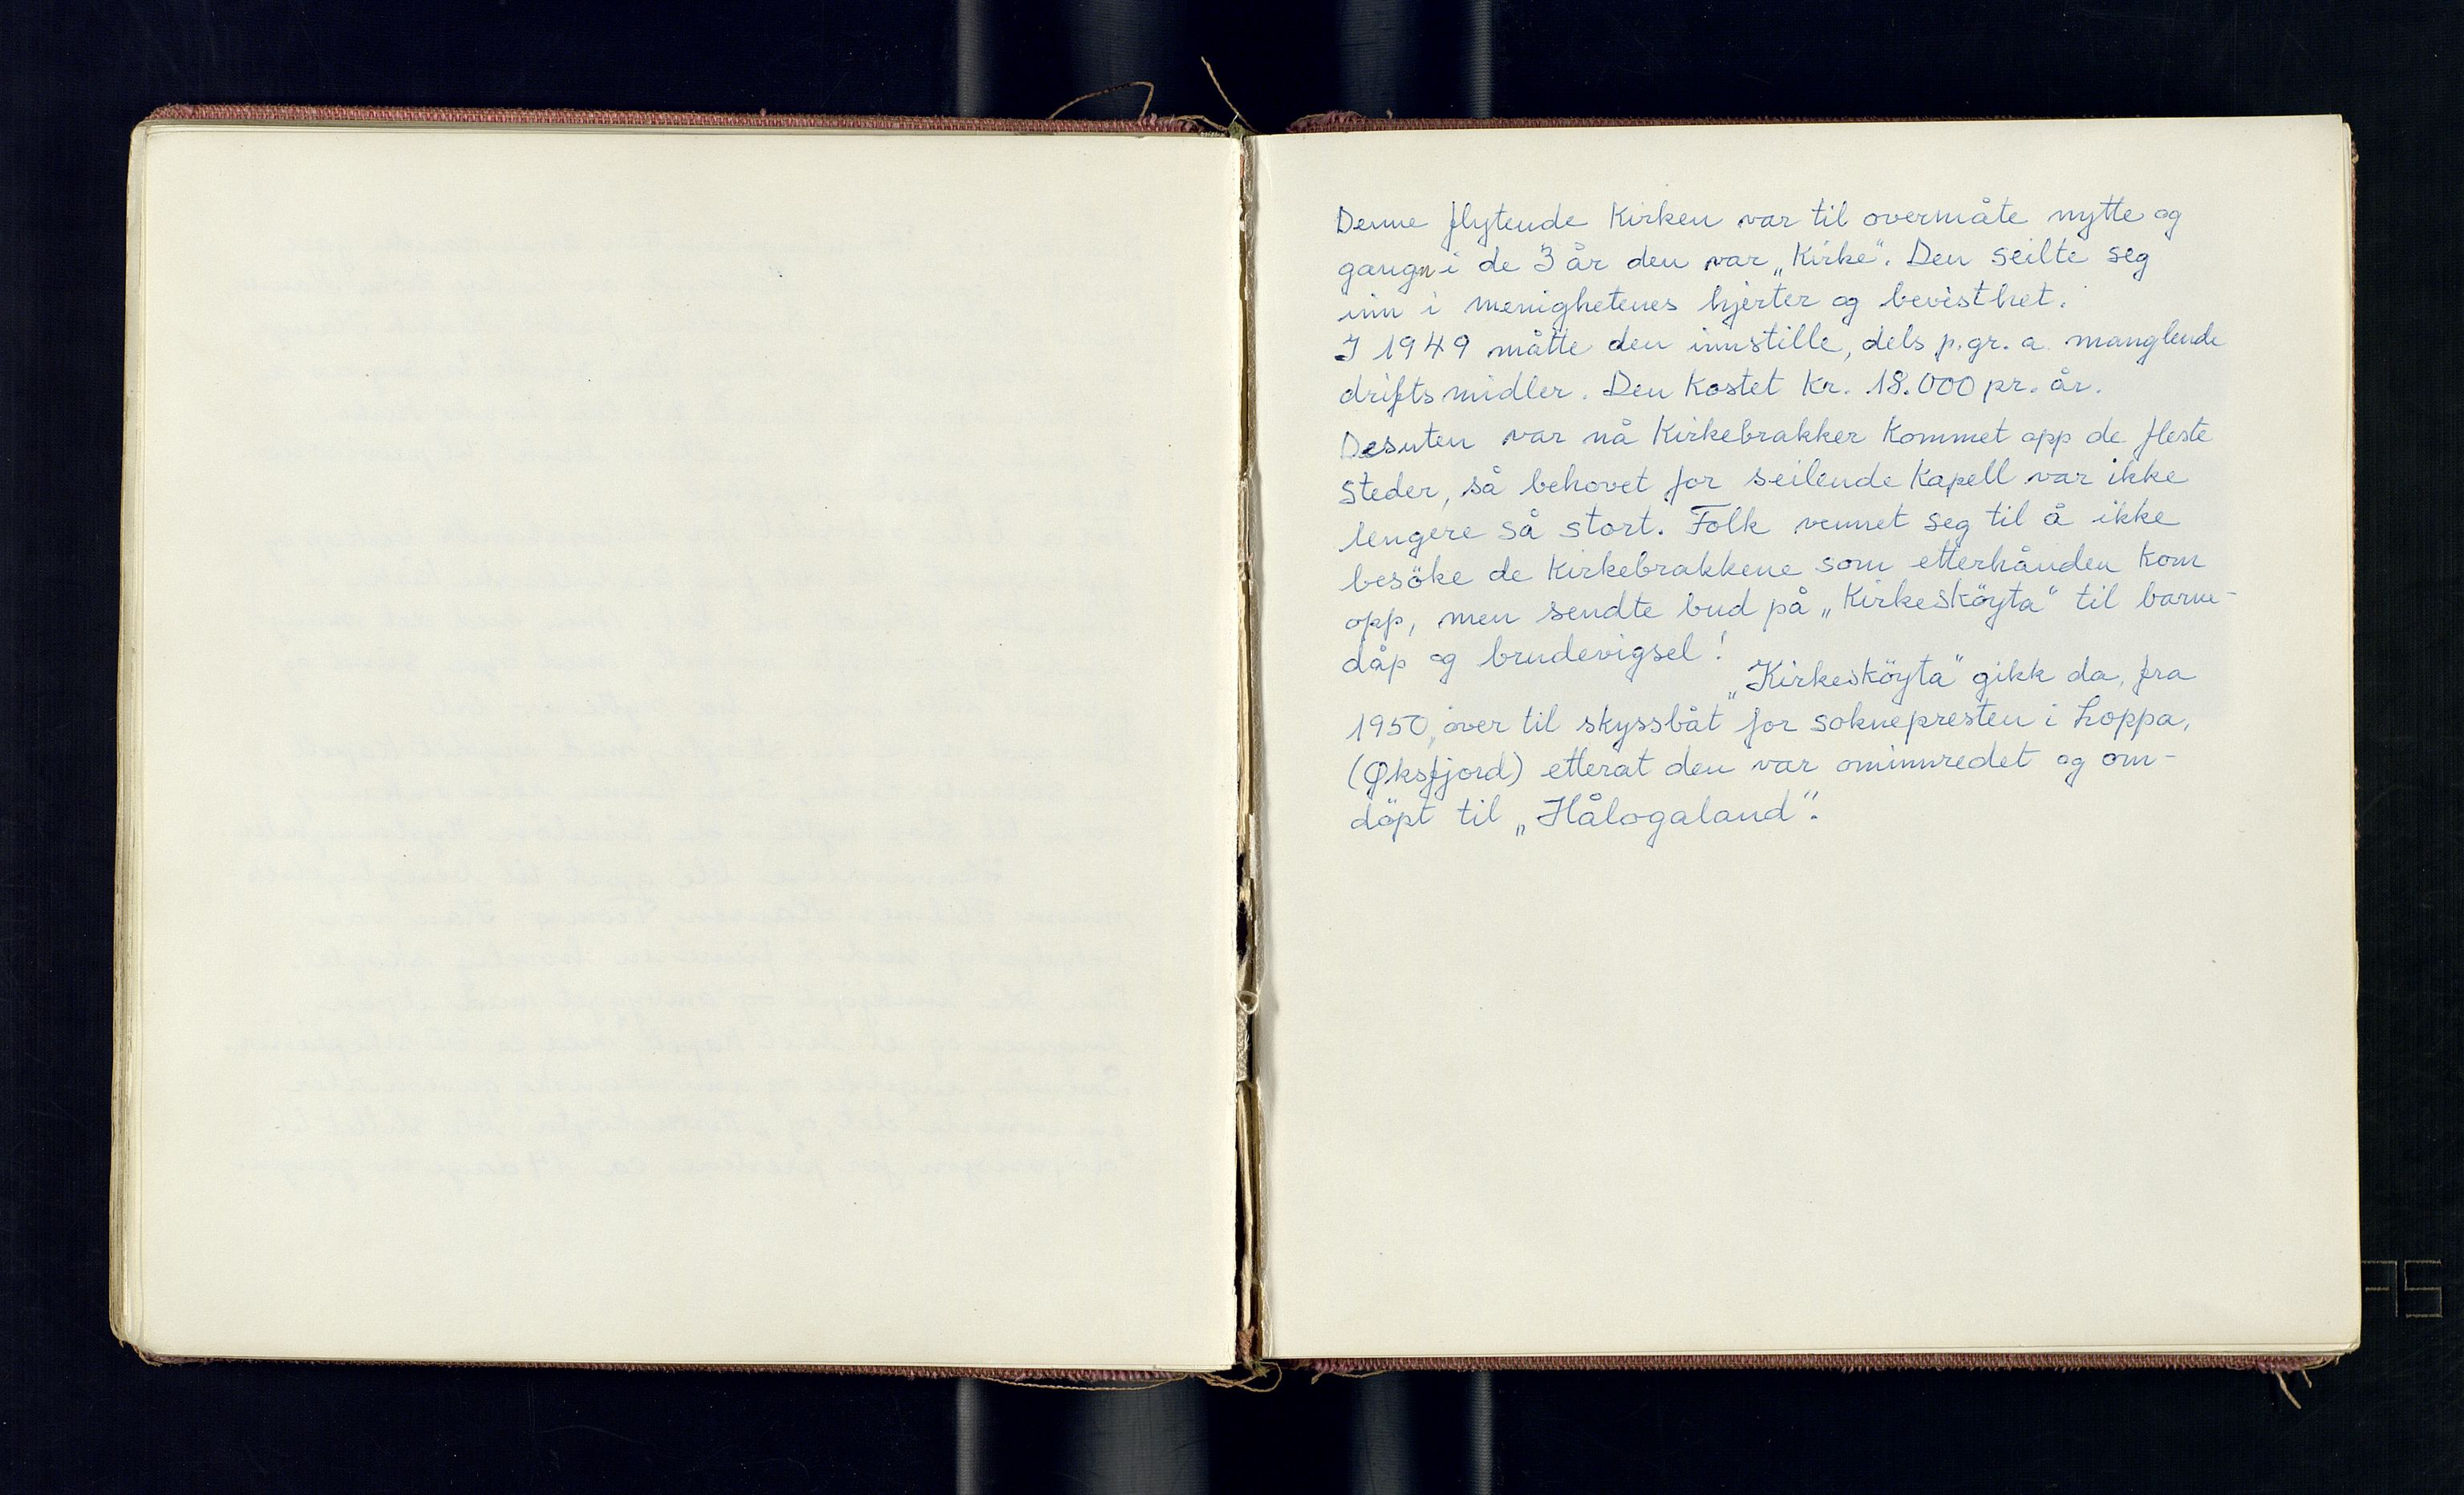 Denne flytende Kirken var til overmåte nytte og
gagn i de 3 år den var „Kirke“. Den seilte seg
inn i menighetenes hjerter og bevisthet.
I 1949 måtte den innstille, dels p.gr. a. manglende
driftsmidler. Den Kostet Kr. 18.000 pr. år.
Desuten var nå Kirkebrakker Kommet opp de fleste
Steder, så behovet for seilende Kapell var ikke
lengere så stort. Folk vennet seg til å ikke
besöke de Kirkebrakkene som etterhånden Kom
opp, men sendte bud på „Kirkesköyta“ til barne-
dåp og brudevigsel!
„Kirkesköyta“ gikk da, fra
1950, over til skyssbåt for soknepresten i Loppa,
(Øksfjord) etterat den var ominnredet og om-
döpt til „Hålogaland“.